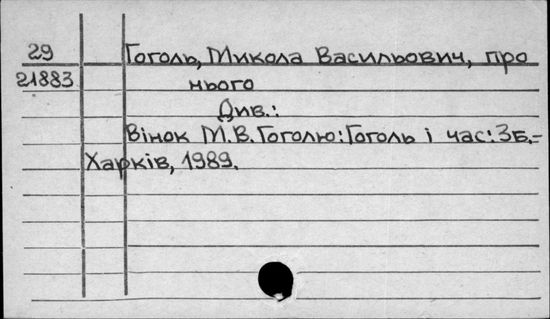 29 Гоголь, Микола Васильович, про
21883 нього
Див.:
Вінок М.В.Гоголю:Гоголь і час:Зб.-
Харків, 1989.